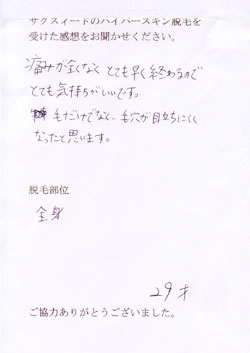 サクスィードのハイパースキン脱毛を
受けた感想をお聞かせください。
痛みが全くなく とても早く終わるので
とても気持ちがいいです。
毛だけでなく、毛穴が目立ちにくく
なったと思います。
脱毛部位
全身
29才
ご協力ありがとうございました。